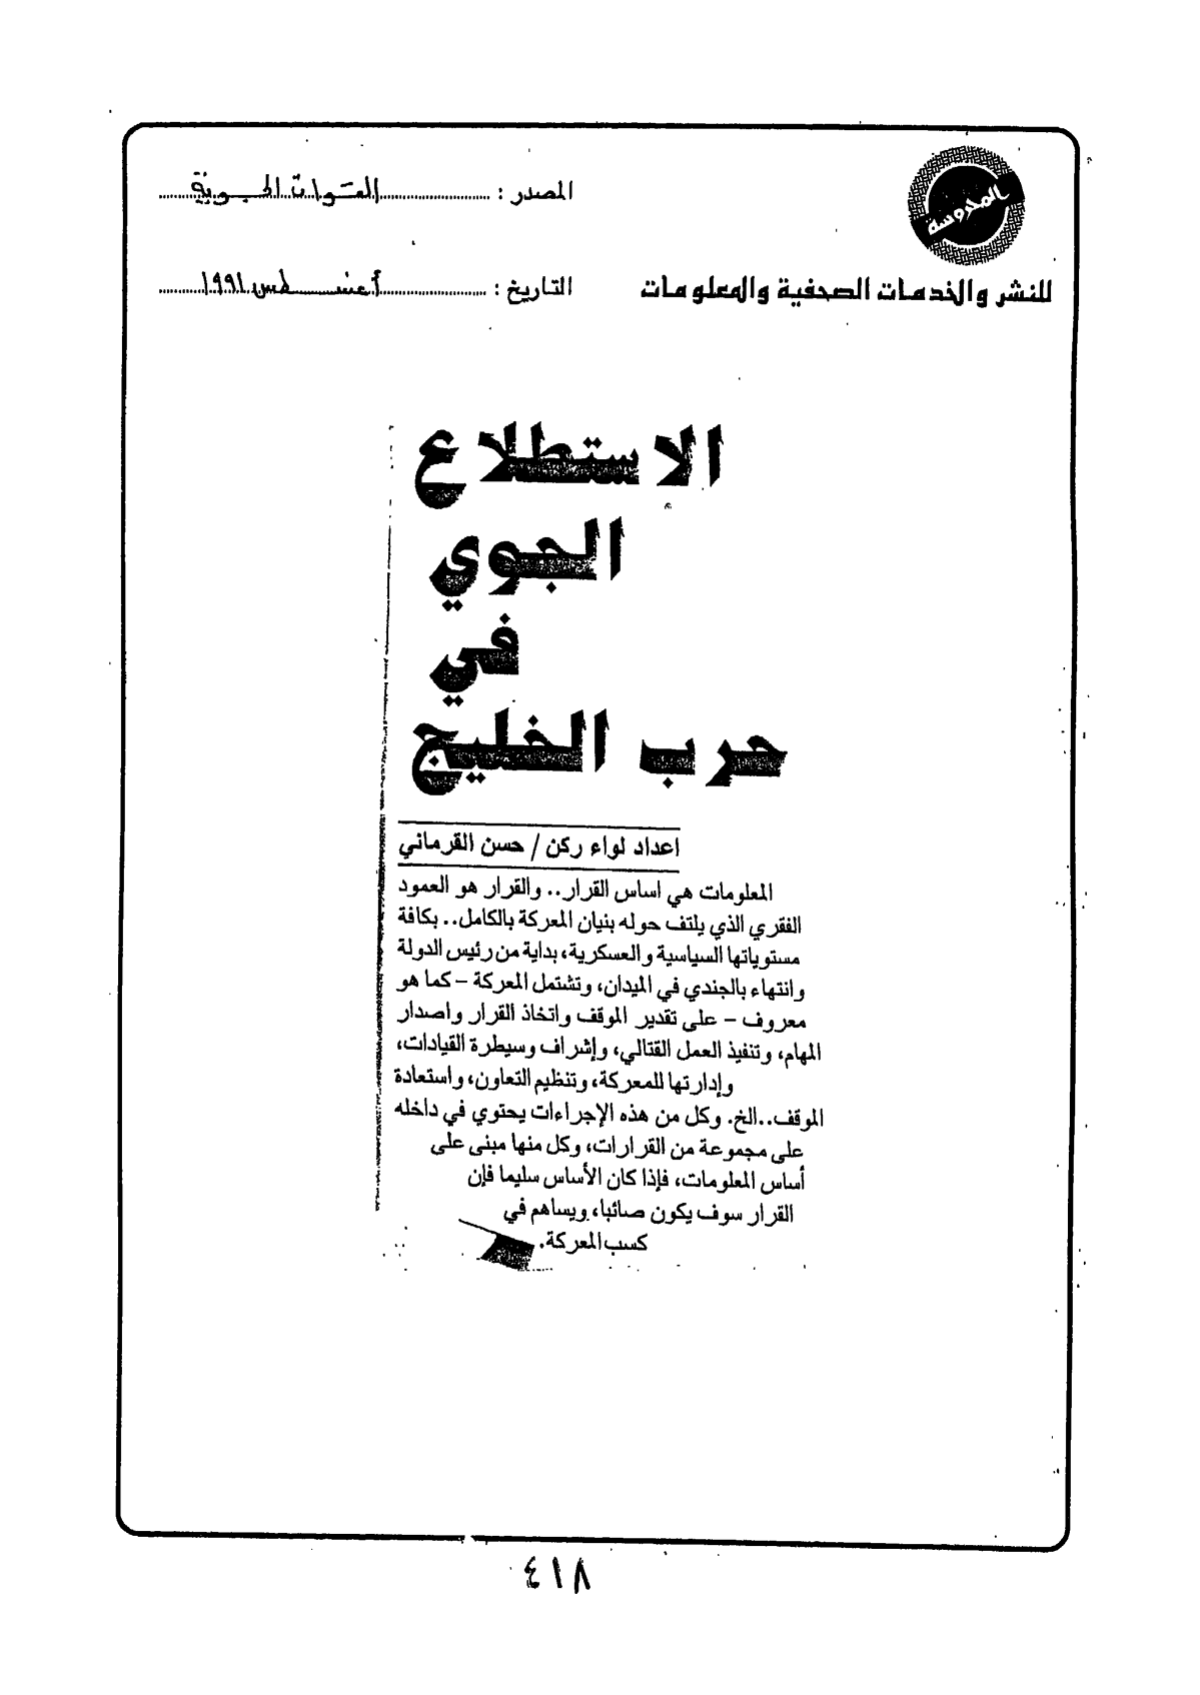 المحروسة
المصدر : القوات الجوية
للنشر والخدمات الصحفية والمعلومات
التاريخ : أغسطس ١٩٩١
الاستطلاع
الجوي
في
حرب الخليج
اعداد لواء ركن / حسن القرماني
المعلومات هي اساس القرار.. والقرار هو العمود
الفقري الذي يلتف حوله بنيان المعركة بالكامل.. بكافة
مستوياتها السياسية والعسكرية، بداية من رئيس الدولة
وانتهاء بالجندي في الميدان، وتشتمل المعركة – كما هو
معروف – على تقدير الموقف واتخاذ القرار واصدار
المهام، وتنفيذ العمل القتالي، وإشراف وسيطرة القيادات،
وإدارتها للمعركة، وتنظيم التعاون، واستعادة
الموقف..الخ. وكل من هذه الإجراءات يحتوي في داخله
على مجموعة من القرارات، وكل منها مبنى على
أساس المعلومات، فإذا كان الأساس سليما فإن
القرار سوف يكون صائبا، ويساهم في
كسب المعركة.
٤١٨